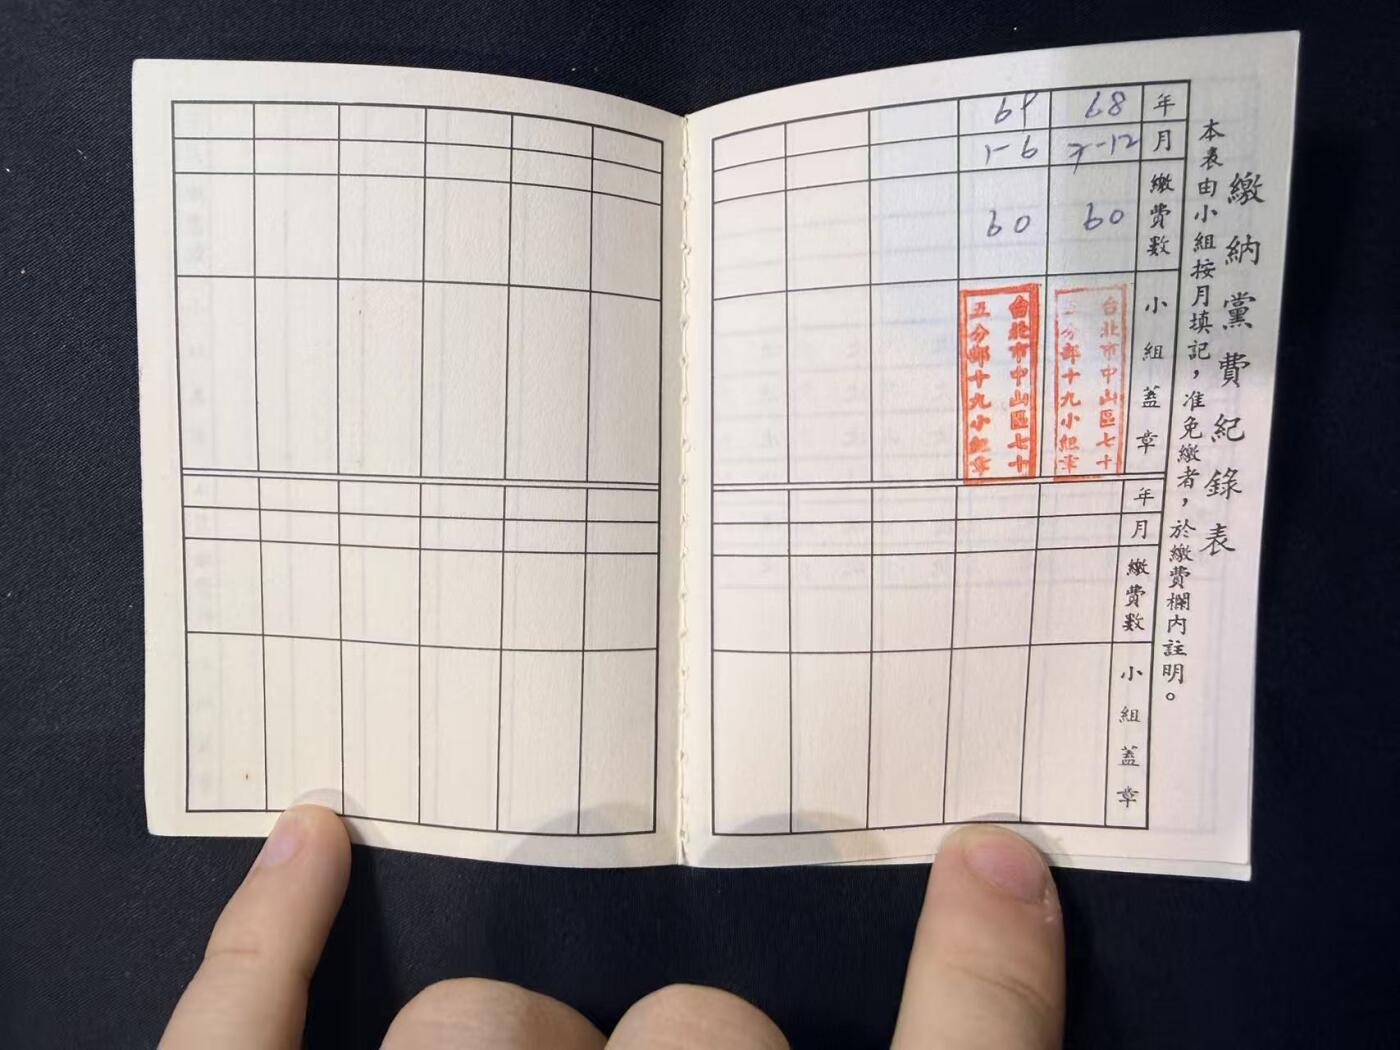 繳納黨費紀錄表
本表由小組按月填記，准免繳者，於繳費欄內註明。
年 68 69
月 7-12 1-6
繳費數 60 60
小組蓋章
台北市中山區七十
五分部十九小組章
台北市中山區七十
五分部十九小組章
年
月
繳費數
小組蓋章